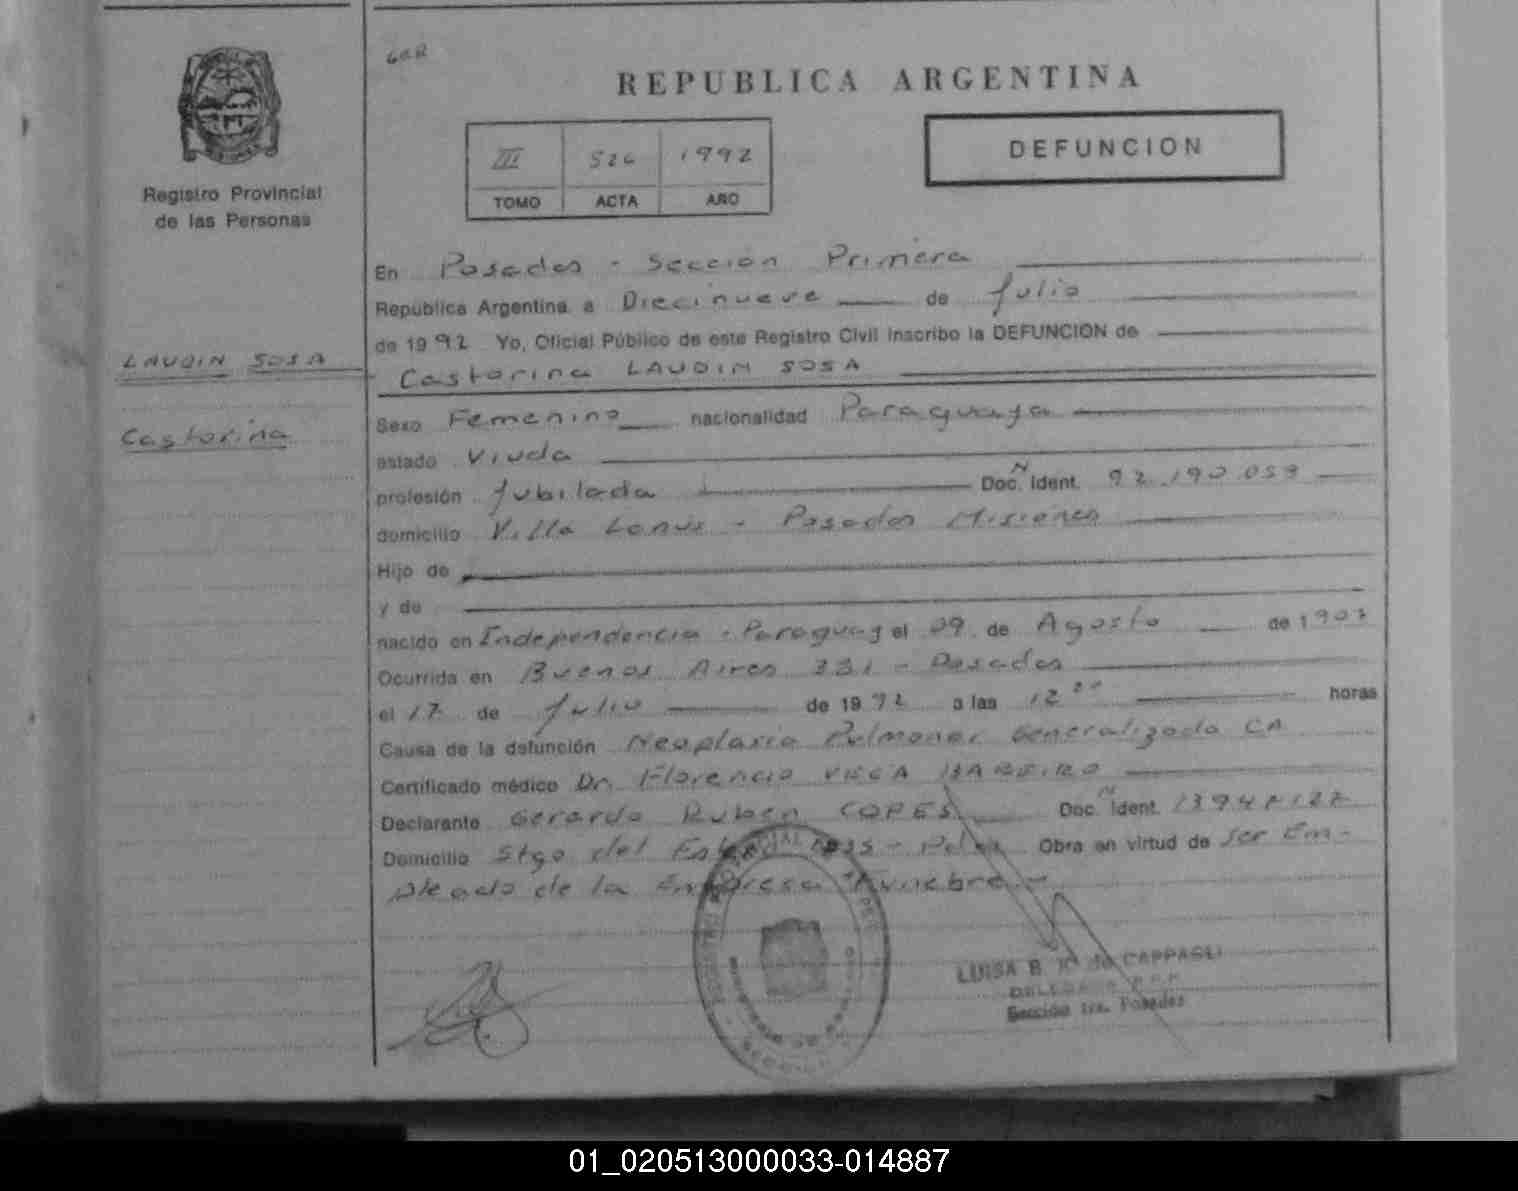 REPUBLICA ARGENTINA
III 526 1992
TOMO ACTA AÑO
DEFUNCION
Registro Provincial
de las Personas
LAUDIN SOSA
Castorina
En Posadas - Sección Primera
República Argentina a Diecinueve de Julio
de 1992 Yo, Oficial Público de este Registro Civil inscribo la DEFUNCION de
Castorina LAUDIN SOSA
Sexo Femenino nacionalidad Paraguaya
estado Viuda
profesión Jubilada Doc. N Ident. 92.190.059
domicilio Villa Lanús - Posadas Misiones
Hijo de
y de
nacido en Independencia - Paraguay el 09 de Agosto de 1907
Ocurrida en Buenos Aires 331 - Posadas
el 17 de Julio de 1992 a las 12 00 horas
Causa de la defunción Neoplasia Pulmonar Generalizada CA
Certificado médico Dr. Florencio BAREIRO
Declarante Gerardo Ruben COPES Doc. N Ident.
Domicilio Stgo del Obra en virtud de ser Em-
pleado de la Empresa Funebre.-
LUISA B. de CAPPAGLI
Sección 1ra. Posadas
01_020513000033-014887